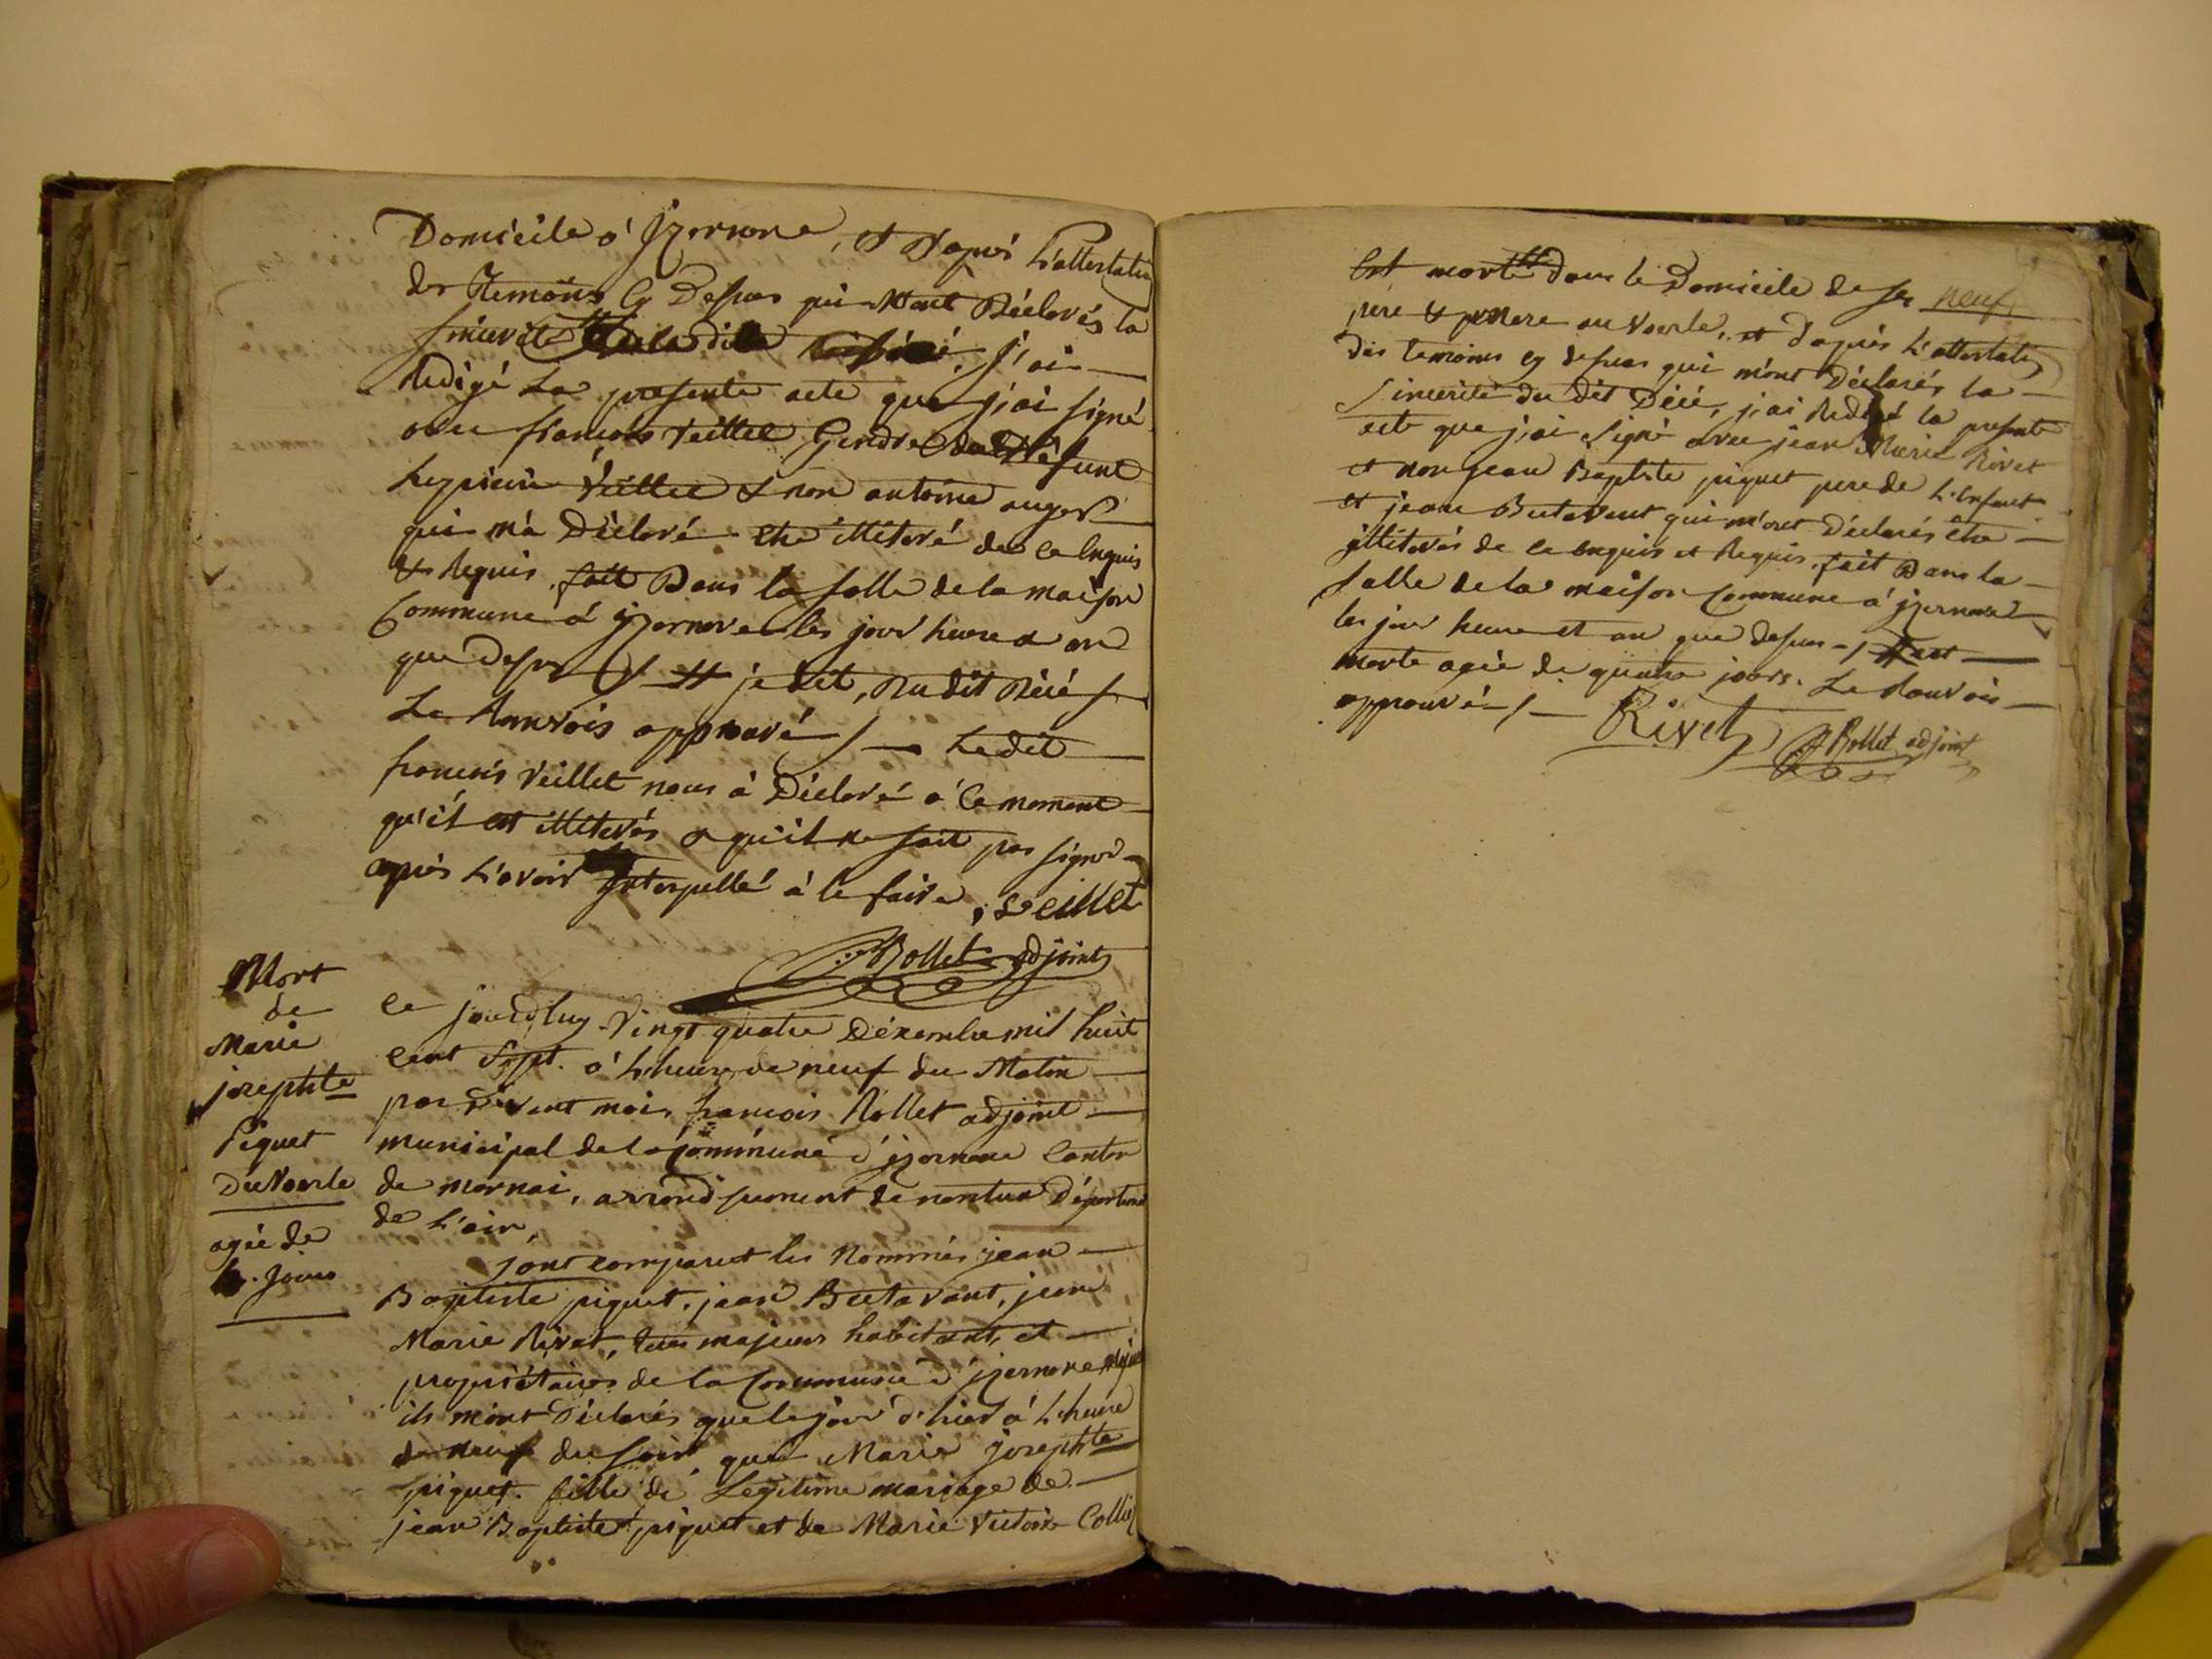 Domicile à Jzernore, et D'après L'attestation
des Temoins Cy Dessus qui M'ont Déclarés la
sincerité j'ai
Redigé La presente acte que j'ai signé
avec francois Veillet Gendre du Défunt
Veillet & non antoine auger
qui m'a Déclaré etre illiteré de ce Enquis
& Requis. fait Dans la salle de la maison
Commune à jzernore les jour heure & an
que dessus je dit, Du dit Décé
Le Ranvois approuvé /— Ledit
francois Veillet nous à Déclaré à ce moment
qu'il est illiterés & qu'il ne sait pas signer
après L'avoir Interpellé à le faire, Veillet
Rollet adjoint
Mort
de
Marie
josephte
Piguet
Du Voerle
agée de
4. Jours
ce jourd'huy Vingt quatre Décembre mil huit
cent Sept. à L'heure de neuf du Matin
par devant moi francois Rollet adjoint
municipal de la Commune d'jzernore Canton
de mornai, arrondissement de nantua Département
de L'ain,
sont comparut les Nommés jean
Baptiste piguet, jean Buetavant, jean
Marie Rivet, tous majeurs habitant, et
proprietaires de la Commune d'jzernore
ils m'ont Déclarés que le jour d'hier à L'heure
de neuf du soir que Marie josephte
piguet. fille de Legitime mariage de
jean Baptiste piguet et de Marie Victoire Collet
Est morte dans le Domicile de ses neuf
père & mere au Voerle, et D'après L'attestation
des temoins cy dessus qui m'ont Déclarés la
sincerité du dit Décé, j'ai Redigé la presente
acte que j'ai signé avec jean Marie Rivet
et non jean Baptiste piguet pere de L'Enfant
et jean Buetavant qui m'ont Déclarés être
jlliterés de ce enquis et Requis. fait Dans la
salle de la maison Commune à jzernore
les jour heure et an que dessus -/ est
morte agée de quatre jours. Le Ranvois
approuvé -/- Rivet Rollet adjoint